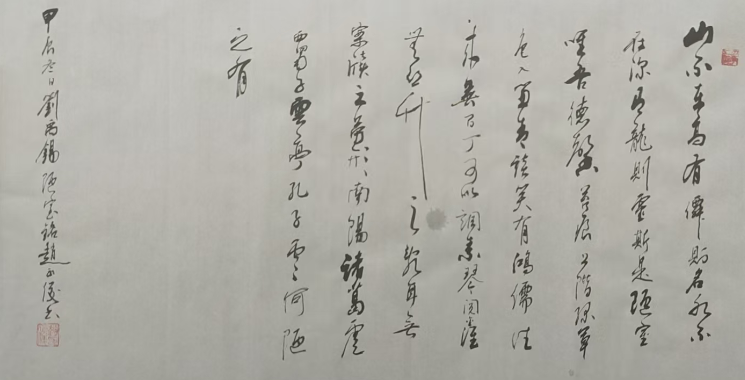 山不在高有僊則名水不
在深有龍則靈斯是陋室
唯吾德馨苔痕上階綠草
色入簾青談笑有鴻儒往
來無白丁可以調素琴閱
無絲竹之亂耳無
案牘之勞形南陽諸葛廬
西蜀子雲亭孔子雲何陋
之有
甲辰冬日劉禹錫陋室銘趙書